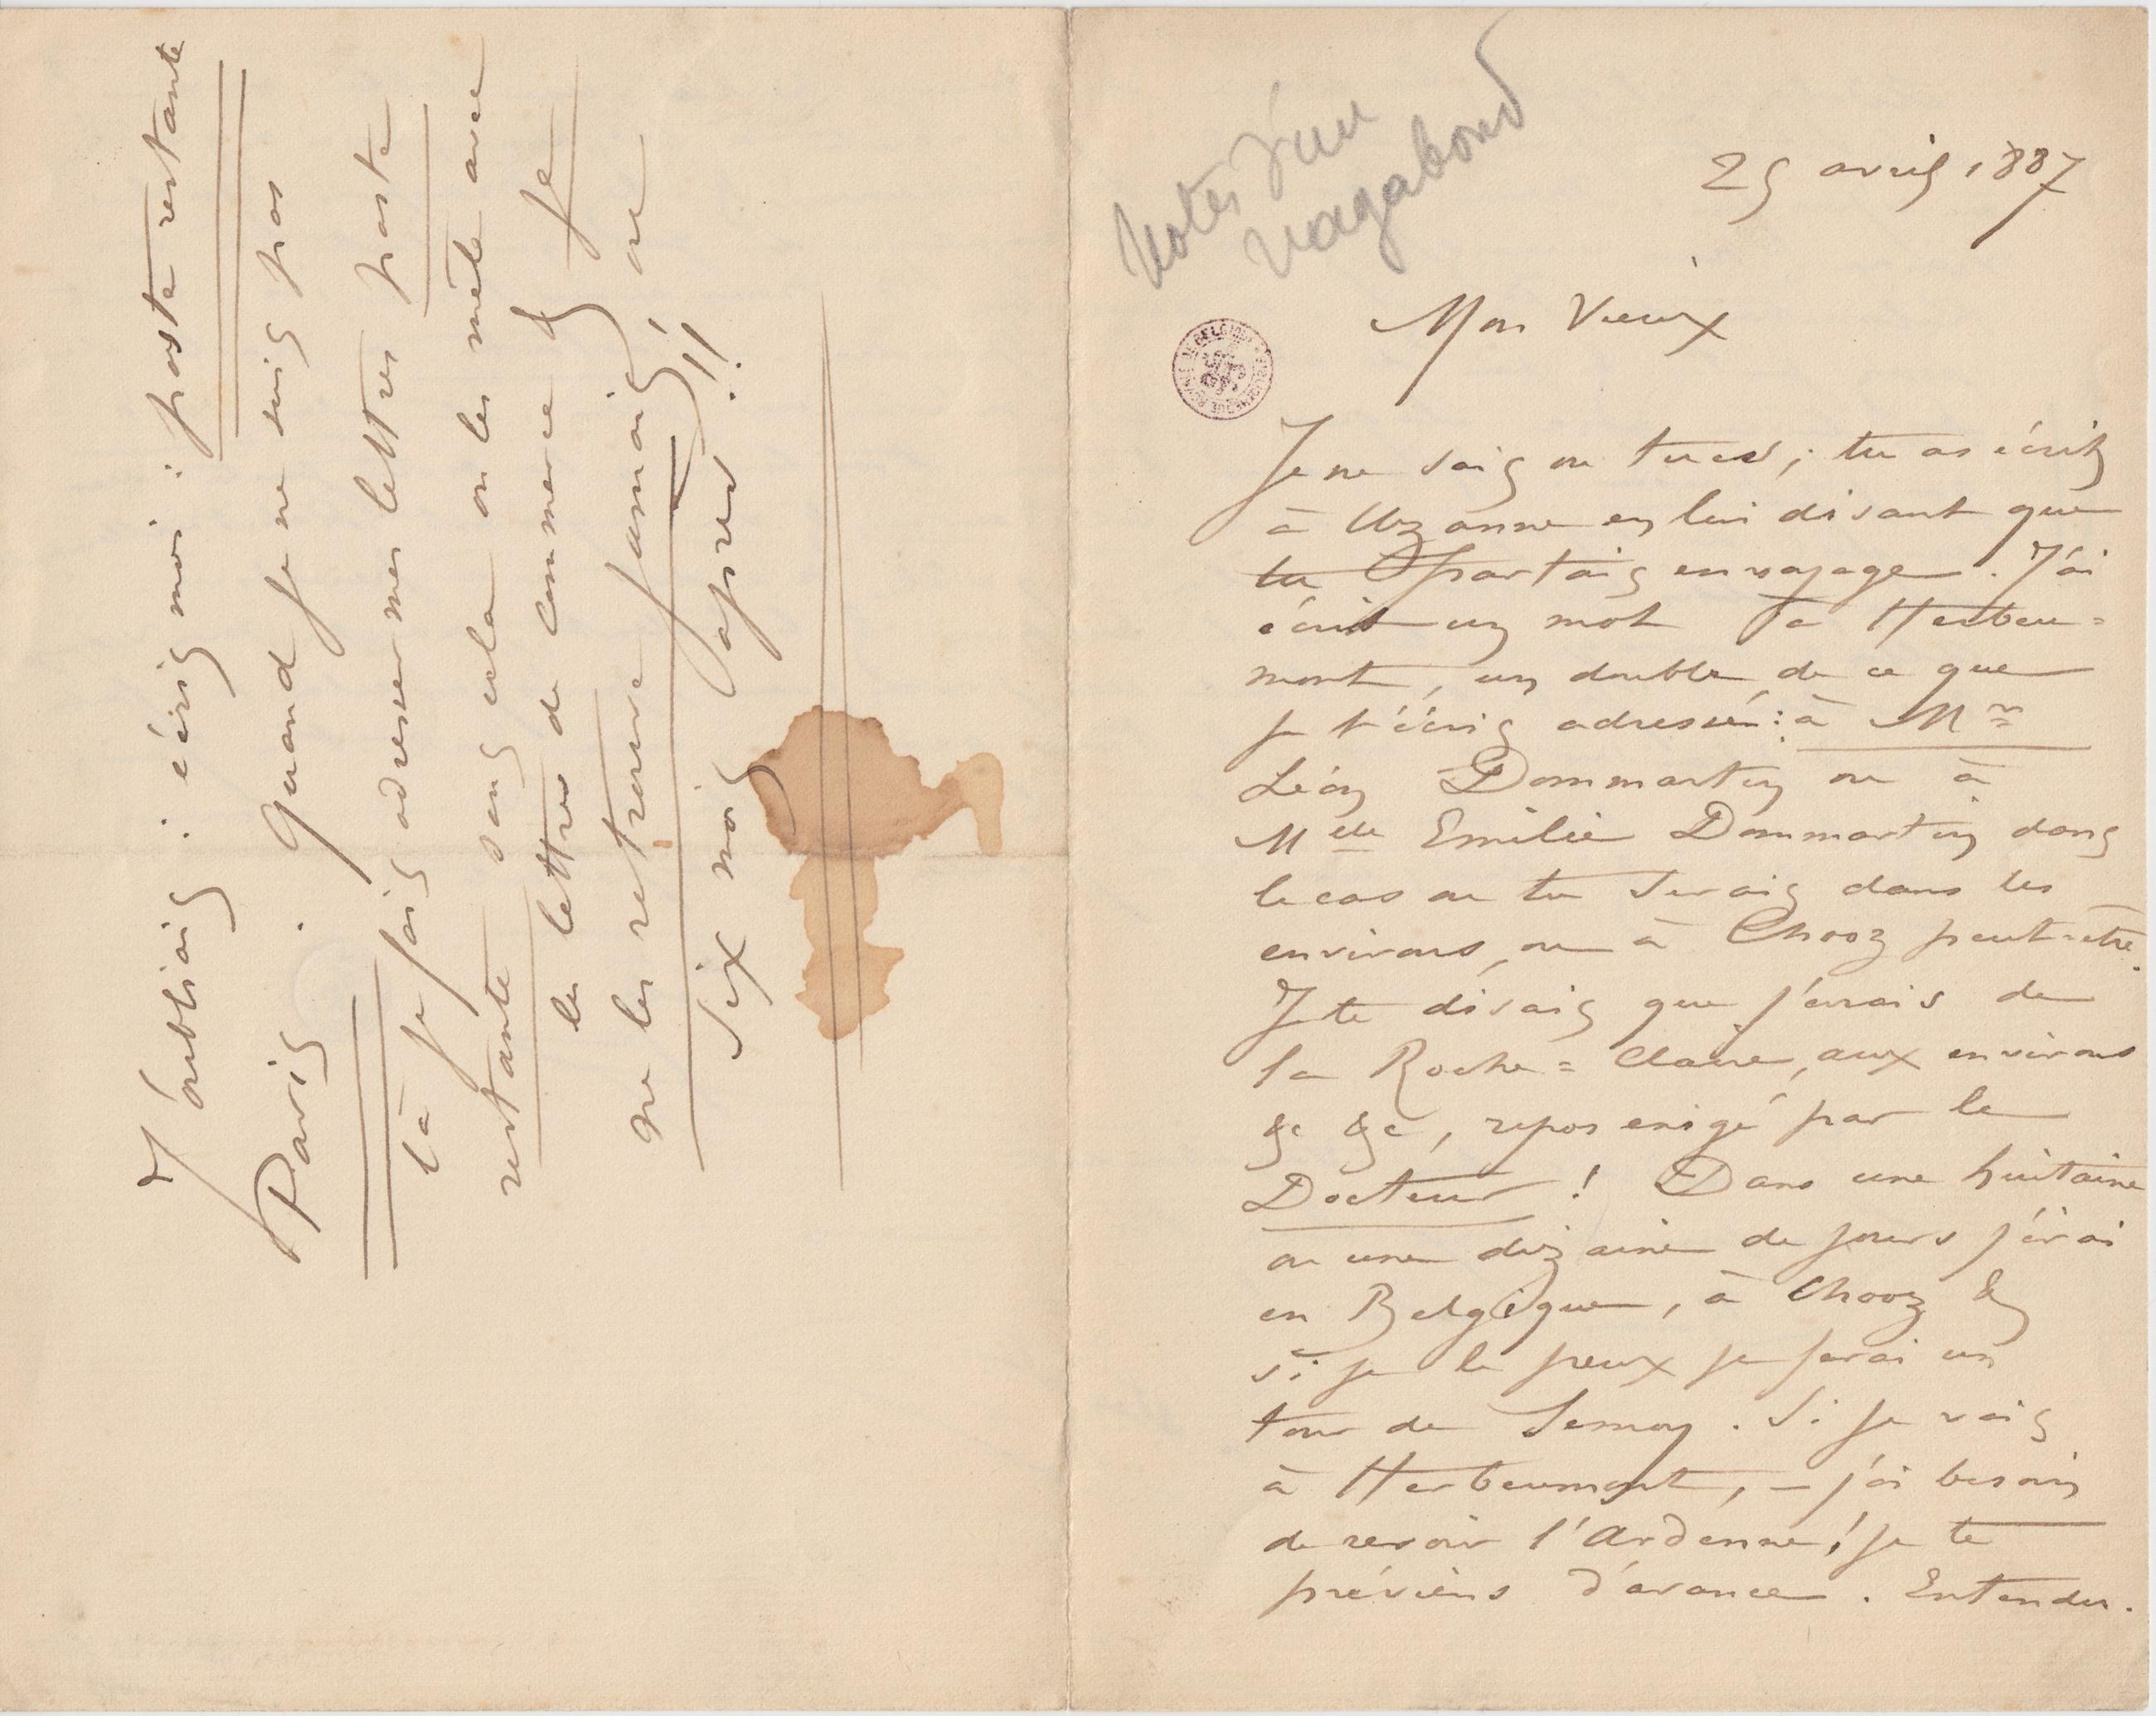 Notes d'un
vagabond
25 avril 1887
Mon Vieux
Je ne sais ou tu es ; tu as écrit
à Uzanne en lui disant que
tu partais en voyage. J'ai
écrit un mot à Herbeu=
mont, un double, de ce que
je t'écris adressé : à Mr
Léon Dommartin ou à
Melle Emilie Dommartin dans
le cas ou tu serais dans les
environs, ou à Chooz peut-être.
Je te disais que j'avais de
la Roche = Claire, aux environs
&c &c, repos exigé par le
Docteur ! Dans une huitaine
ou une dizaine de jours j'irai
en Belgique, à Chooz &
si je le peux je ferai un
tour de Semoy. Si je vais
à Herbeumont, – j'ai besoin
de revoir l'Ardenne ! je te
préviens d'avance. Entendu.
J'oubliais : écris moi : poste restante
Paris. Quand je ne suis pas
là je fais adresser mes lettres poste
restante sans cela on les mêle avec
les lettres de commerce & je
ne les retrouve jamais, ou
six mois après !!